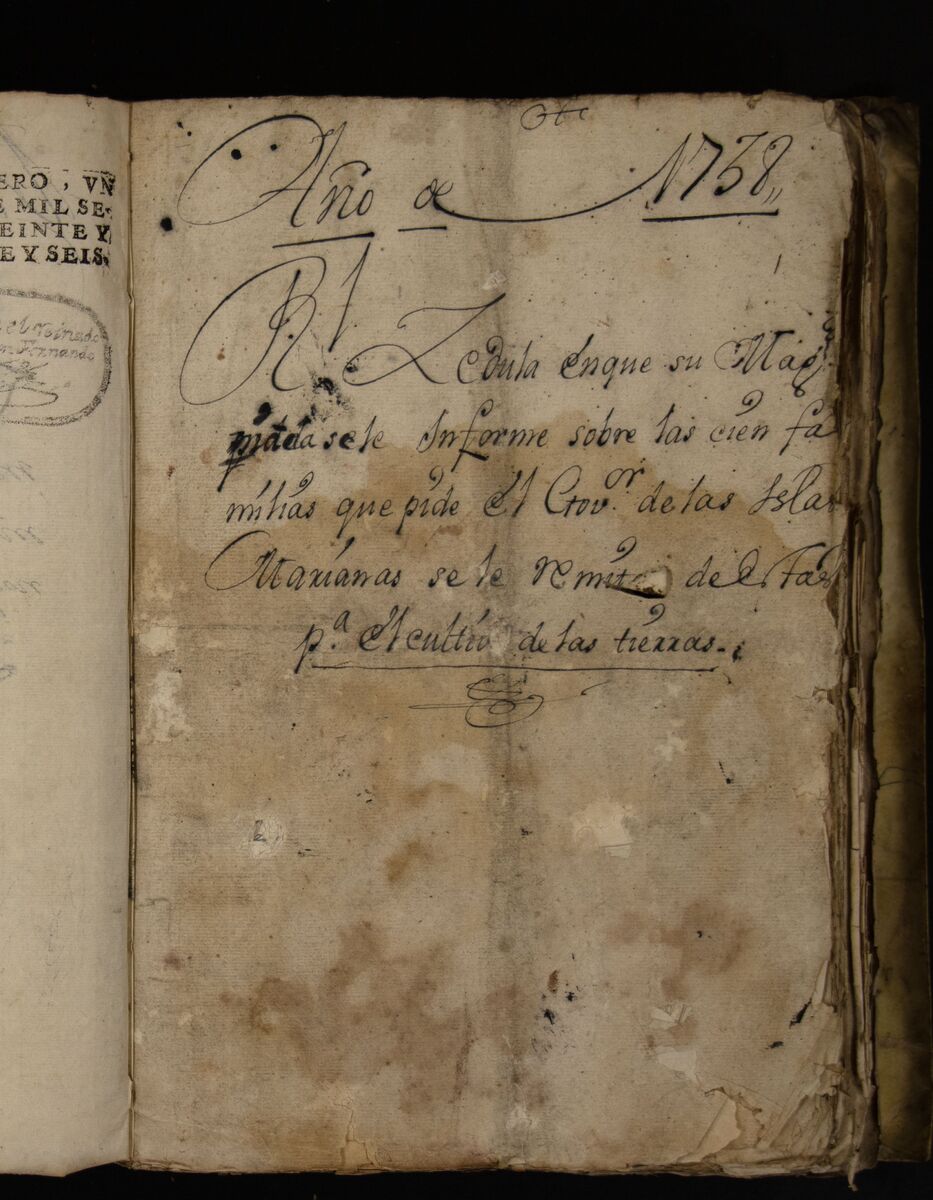 ERO, VN
E MIL SE-
EINTE Y
E Y SEIS.
el Reinado
n Fernando
Año de 1738,,
Rl Zedula en que su Magd
manda se le Informe sobre las cien fa
milias que pide el Govor. de las Islas
Marianas se le remitan de estas
pa. el cultivo de las tierras.